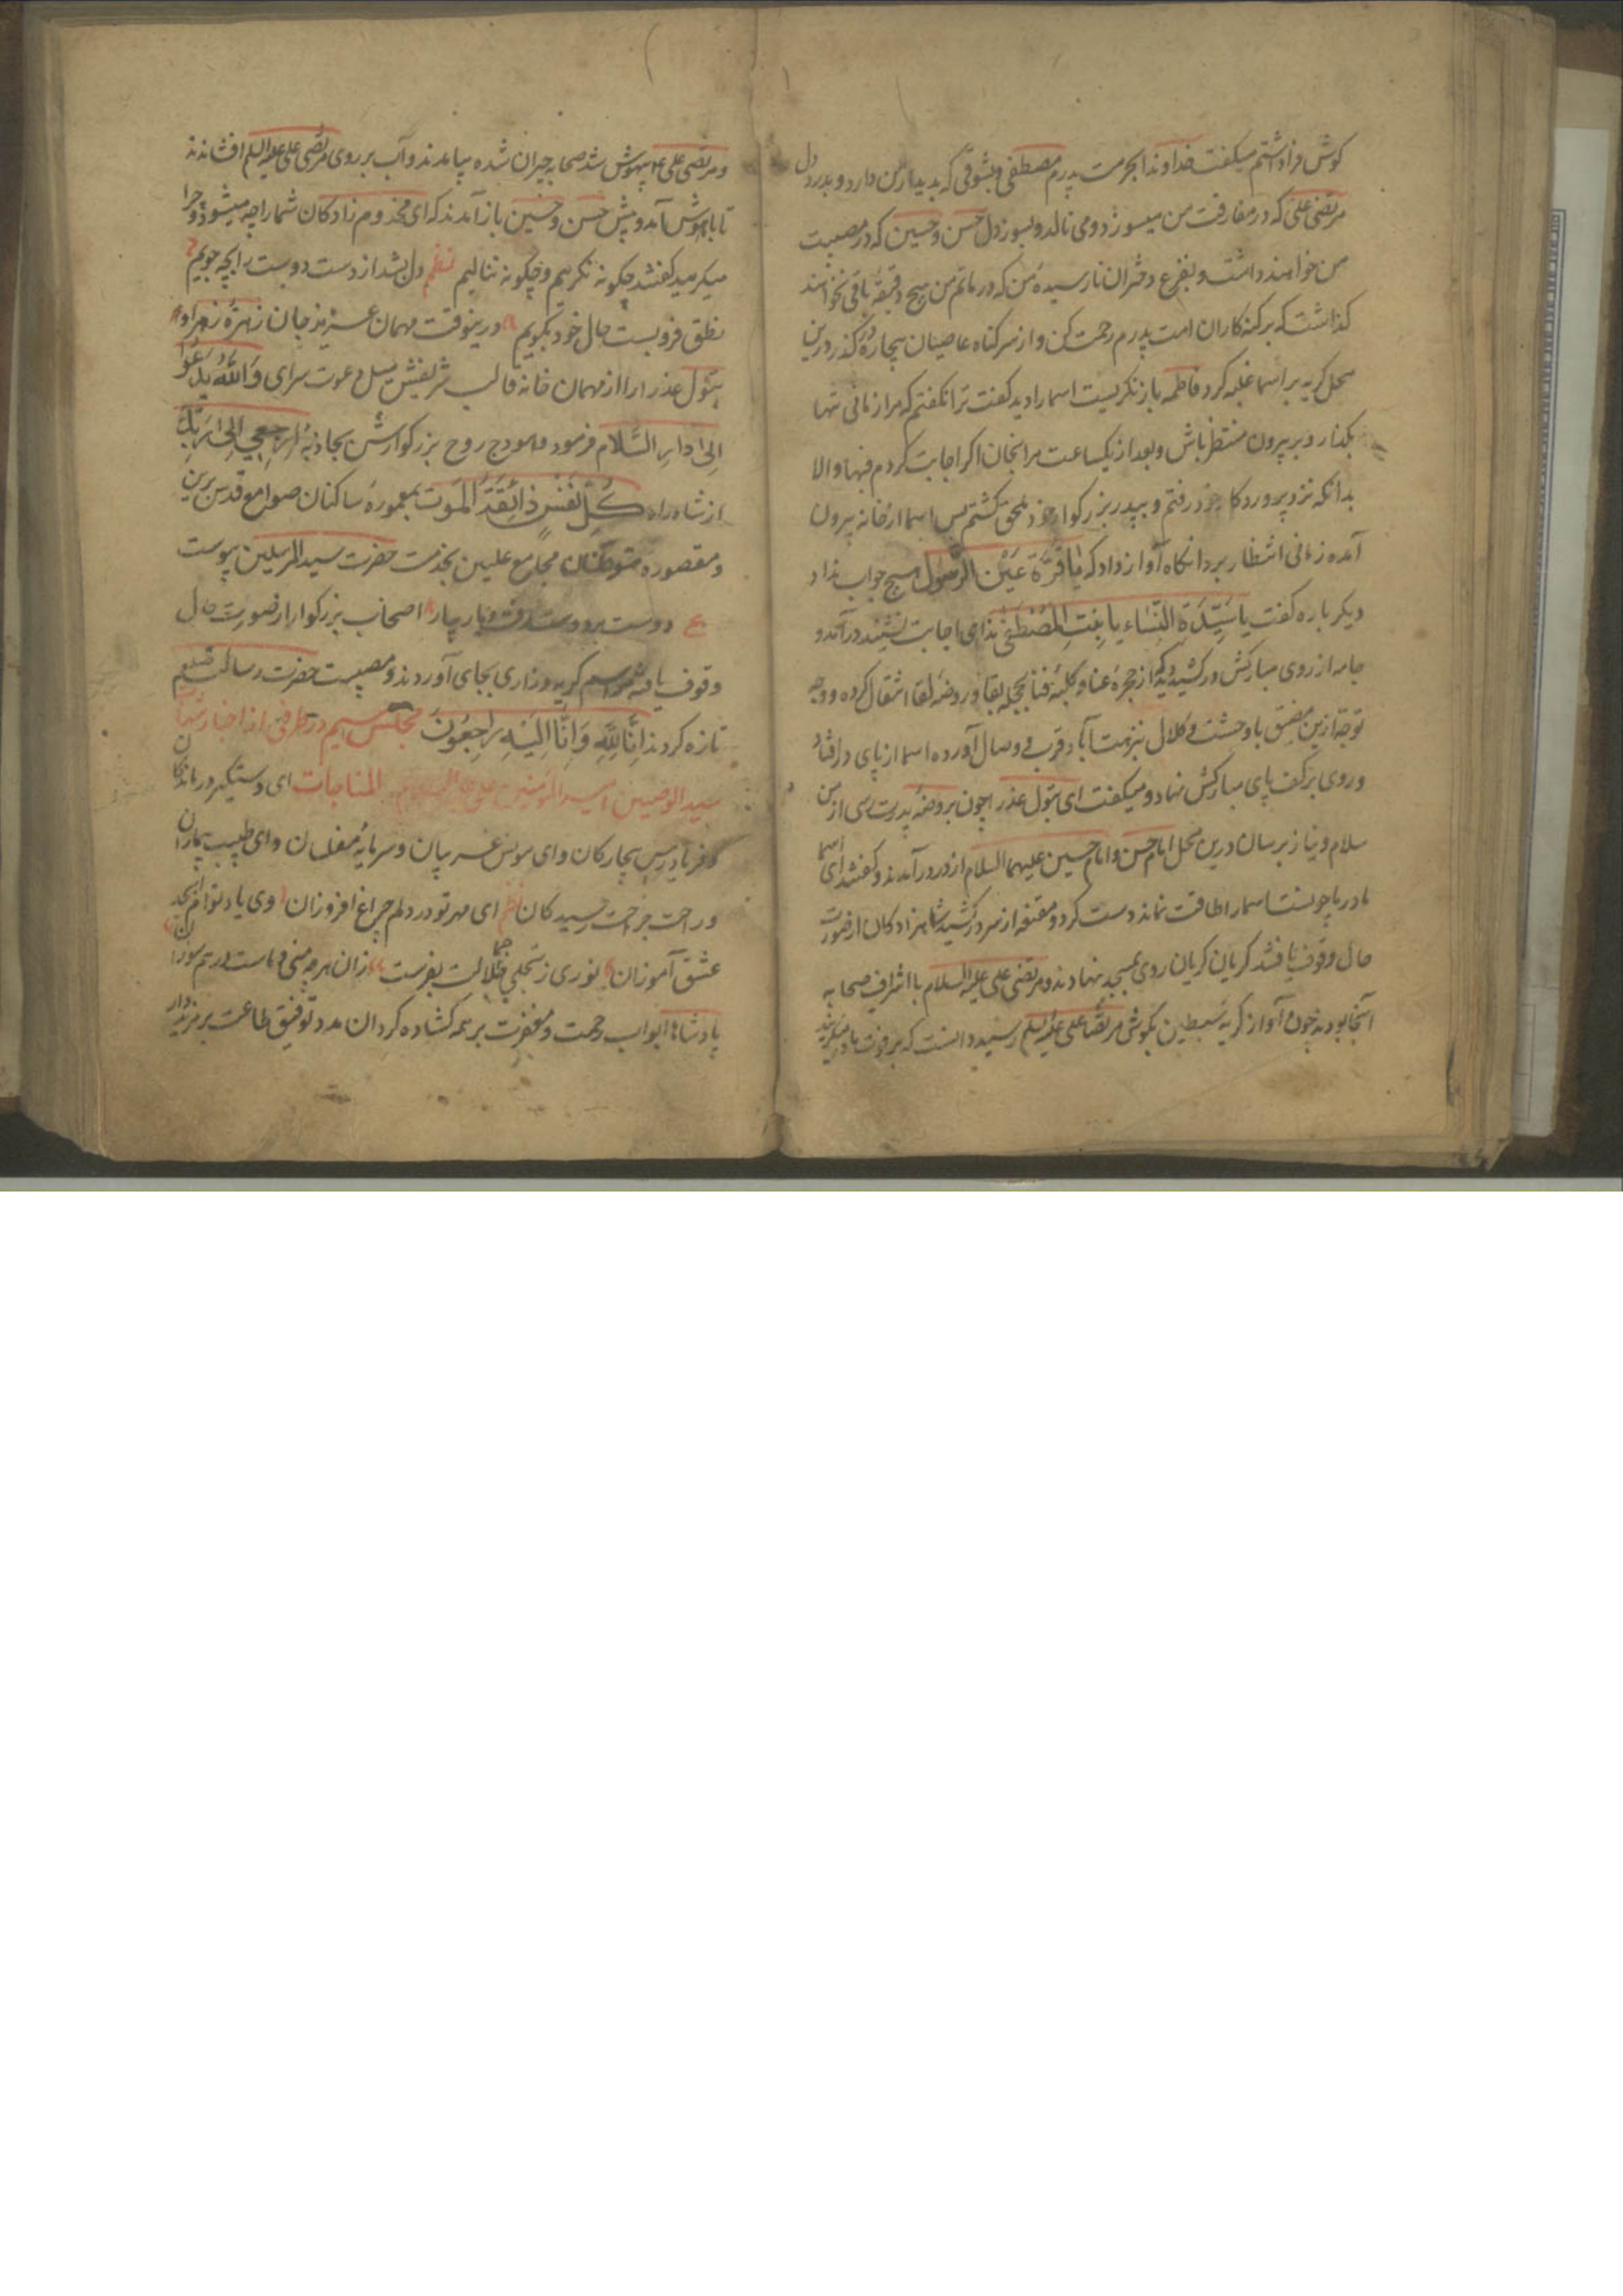 کوش فرا داشتم میکفت خداوندا بحرمت پدرم مصطفی و بشوقی که بدیدار من دارد و بدرد دل
مرتضی علی که در مفارقت من میسوزد و می نالد و بسوز دل حسن و حسین که در مصیبت
من خواهند داشت و بفزع دختران نارسیدهٔ من که در ماتم من هیچ دقیقهٔ باقی نخواهند
کذاشت که بر کنه کاران امت پدرم رحمت کن و از سر کناه عاصیان بیچاره در کذر درین
محل کریه بر اسما غلبه کرد فاطمه باز نکریست اسما را دید کفت ترا نکفتم که مرا زمانی تنها
بکذار و بر بیرون منتظر باش و بعد از یکساعت مرا بخوان اکر اجابت کردم فبها و الا
بدانکه نزد پروردکار خود رفتم و بپدر بزرکوار خود ملحق کشتم پس اسما از خانه بیرون
آمده زمانی انتظار برد انکاه آواز داد که یا قرة عین الرسول هیچ جواب نداد
دیکر باره کفت یا سیدة النساء یا بنت المصطفی ندای اجابت نشنید در آمد و
جامه از روی مبارکش در کشید دید که از حجرهٔ عنا و کلبهٔ فنا بحجلهٔ بقا و روضهٔ لقا انتقال کرده و وجه
توجه ازین مضیق با وحشت و کلال بنزهت آباد قرب و وصال آورده اسما از پای در افتاد
و روی بر کف پای مبارکش نهاد و میکفت ای بتول عذرا چون بروضهٔ پدرت رسی از من
سلام و نیاز برسان درین محل امام حسن و امام حسین علیهما السلام از در در آمدند و کفتند ای اسما
مادر ما چونست اسما را طاقت نماند دست کرد و مقنعه از سر در کشید شاهزادکان از صورت
حال وقوف یافتند کریان کریان روی بمسجد نهادند و مرتضی علی علیه السلام با اشراف صحابه
آنجا بود چون آواز کریهٔ سبطین بکوش مرتضا علی علیه السلم رسید دانست که بر فوت مادر میکریند
و مرتضی علی ع م بیهوش شد صحابه حیران شده بیامدند و آب بر روی مرتضی علی علیه السلم افشاندند
تا باهوش آمد و پیش حسن و حسین باز آمدند که ای مخدوم زادکان شما را چه میشود و چرا
میکریید کفتند چکونه نکرییم و چکونه ننالیم نظم دل بشد از دست دوست را بچه جویم
نطق فرو بست حال خود بکه کویم درینوقت مهمان عزیز جان زهرهٔ زهرا و
بتول عذرا را از مهمان خانهٔ قالب شریفش میل دعوت سرای وَاللهُ یَدْعُوا
اِلی دارِ السَّلام فرمود و هودج روح بزرکوارش بجاذبهٔ اِرجِعِی اِلی رَبِّکِ
از شاه راه کُلُّ نَفسٍ ذائِقَةُ المَوت بمعمورهٔ ساکنان صوامع قدس برین
و مقصورهٔ متوطنان مجامع علیین بخدمت حضرت سید المرسلین پیوست
ع دوست بر دوست رفت و یار بیار اصحاب بزرکوار از صورت حال
وقوف یافته مراسم کریه و زاری بجای آوردند و مصیبت حضرت رسالت صلعم
تازه کردند اِنّا لِلّهِ وَ اِنّا اِلَیهِ راجِعُونَ مجلس سیم در طرفی از اخبار شهادت
سید الوصیین امیر المؤمنین علی علیه السلام المناجات ای دستگیر درماندکان
و فریاد رس بیچارکان و ای مونس غریبان و سرمایهٔ مفلسان و ای طبیب بیماران
و راحت جراحت رسیدکان نظم ای مهر تو در دلم چراغ افروزان وی یاد تو ام ابجد
عشق آموزان نوری ز تجلی جمالت بفرست زان هر چه منی و ماست در هم سوزان
پادشاها ابواب رحمت و مغفرت بر همه کشاده کردان مدد توفیق طاعت بر مزید دار